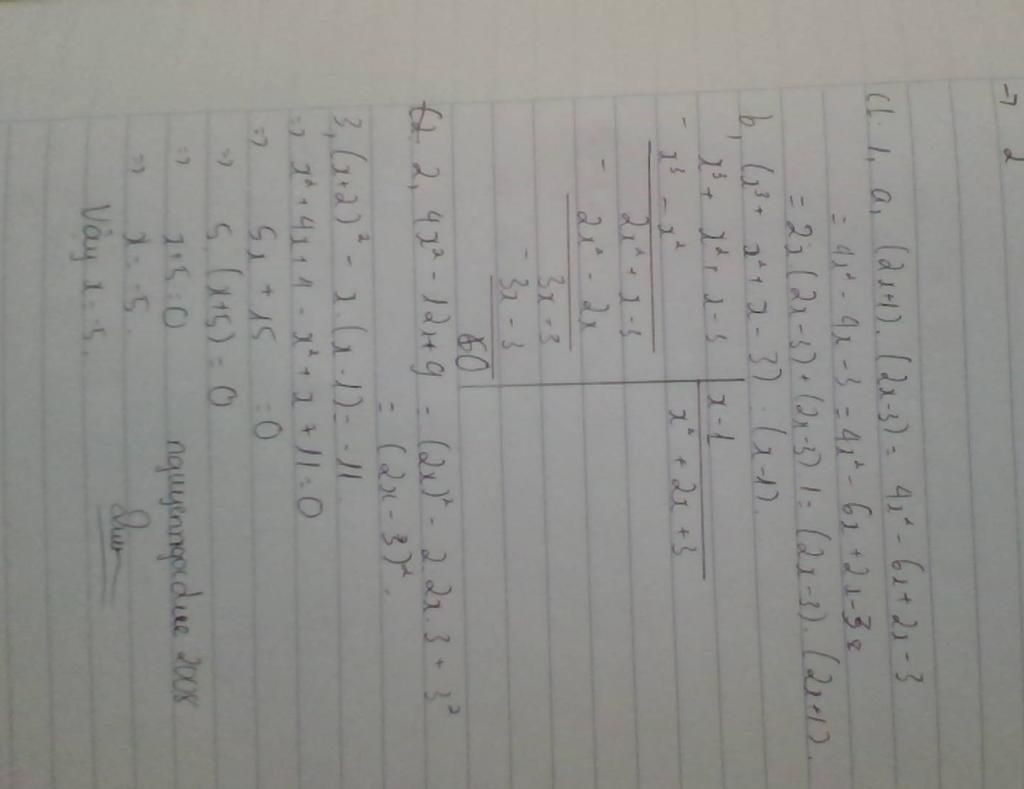 → 2
Cl. 1, a, (2x+1). (2x-3) = 4x² - 6x + 2x - 3
= 4x² - 4x - 3 = 4x² - 6x + 2x - 3 =
= 2x (2x-3) + (2x-3) 1 = (2x-3). (2x+1).
b, (x³ + x² + x - 3) : (x-1).
x³ + x² + x - 3 | x-1
- x³ - x² | x² + 2x + 3
2x² + x - 3
- 2x² - 2x
3x - 3
- 3x - 3
0
2, 4x² - 12x + 9 = (2x)² - 2.2x.3 + 3²
= (2x - 3)².
3, (x+2)² - x.(x-1) = -11.
=> x² + 4x + 4 - x² + x + 11 = 0
=> 5x + 15 = 0
=> 5. (x+5) = 0
=> x+5 = 0
=> x = -5.
Vậy x = -5.
2008